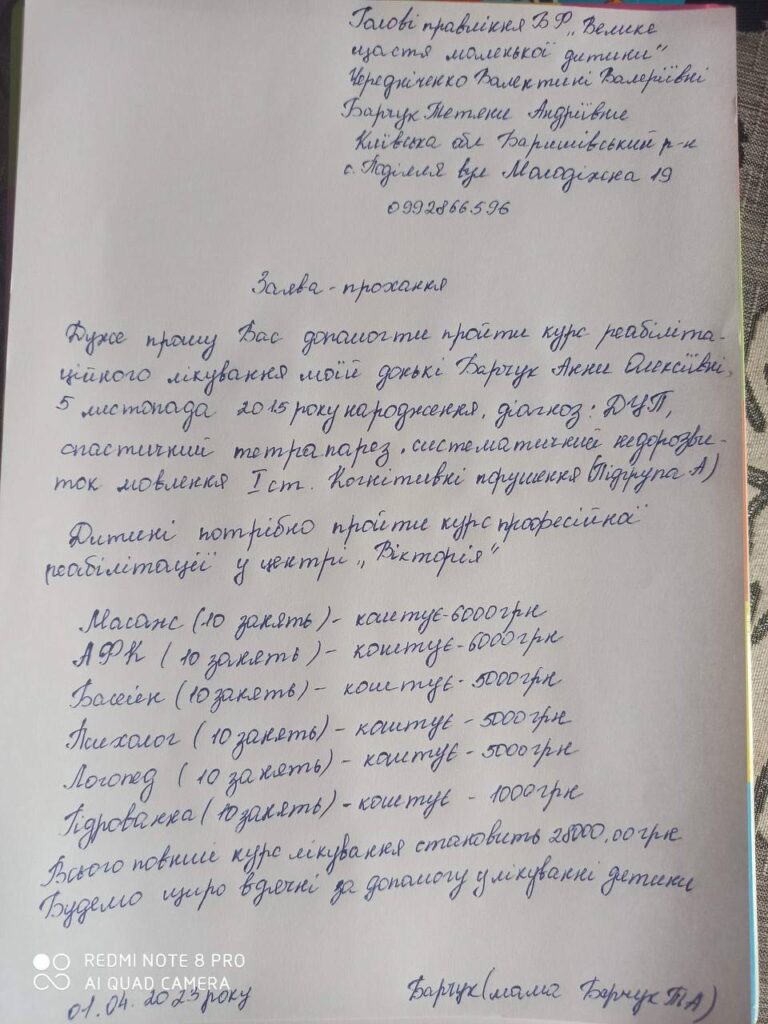 Голові правління БФ „Велике
щастя маленької дитини"
Чередніченко Валентині Валеріївні
Барчук Тетяни Андріївни
Київська обл Баришівський р-н
с. Поділля вул Молодіжна 19
0992866596
Заява - прохання
Дуже прошу Вас допомогти пройти курс реабіліта-
ційного лікування моїй доньці Барчук Анни Олексіївні,
5 листопада 2015 року народження, діагноз: ДЦП,
спастичний тетрапарез, систематичний недорозви-
ток мовлення I ст. Когнітивні порушення (Підгрупа А)
Дитині потрібно пройти курс професійної
реабілітації у центрі „Вікторія"
Масаж (10 занять) - коштує - 6000 грн
АФК (10 занять) - коштує - 6000 грн
Басейн (10 занять) - коштує - 5000 грн
Психолог (10 занять) - коштує - 5000 грн
Логопед (10 занять) - коштує - 5000 грн
Гідрованна (10 занять) - коштує - 1000 грн
Всього повний курс лікування становить 28000,00 грн
Будемо щиро вдячні за допомогу у лікуванні дитини
REDMI NOTE 8 PRO
AI QUAD CAMERA
01.04.2023 року
Барчук (мама Барчук ТА)